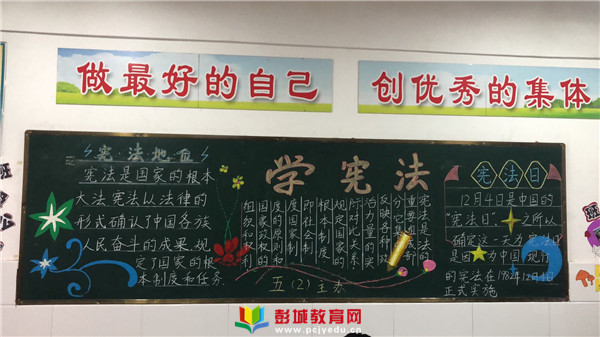 做最好的自己
创优秀的集体
宪法地位
宪法是国家的根本
大法宪法以法律的
形式确认了中国各族
人民奋斗的成果,规
定了国家的根
本制度和任务.
学宪法
宪法是法的
重要组成部
分它
反映各种政
治力量的实
际对比关系
规定国家的
根本制度
即社会制
度国家制
度的原则和
国家政权的
组织和权利
五(2)主办
宪法日
12月4日是中国的
"宪法日".之所以
确定这一天为宪法日
是因为中国现行
的宪法在1982年12月4日
正式实施
彭城教育网
www.pcjyedu.cn